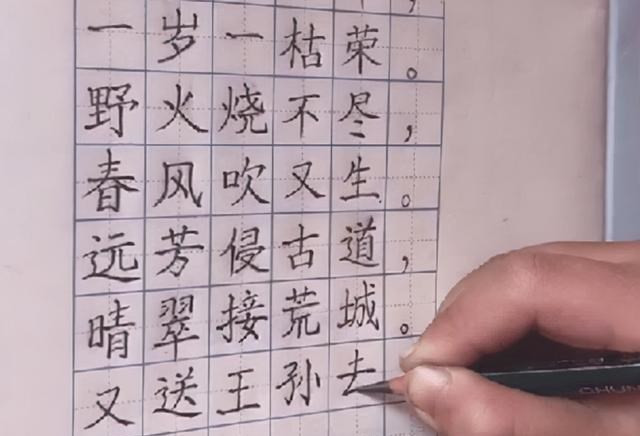 一岁一枯荣。
野火烧不尽，
春风吹又生。
远芳侵古道，
晴翠接荒城。
又送王孙去